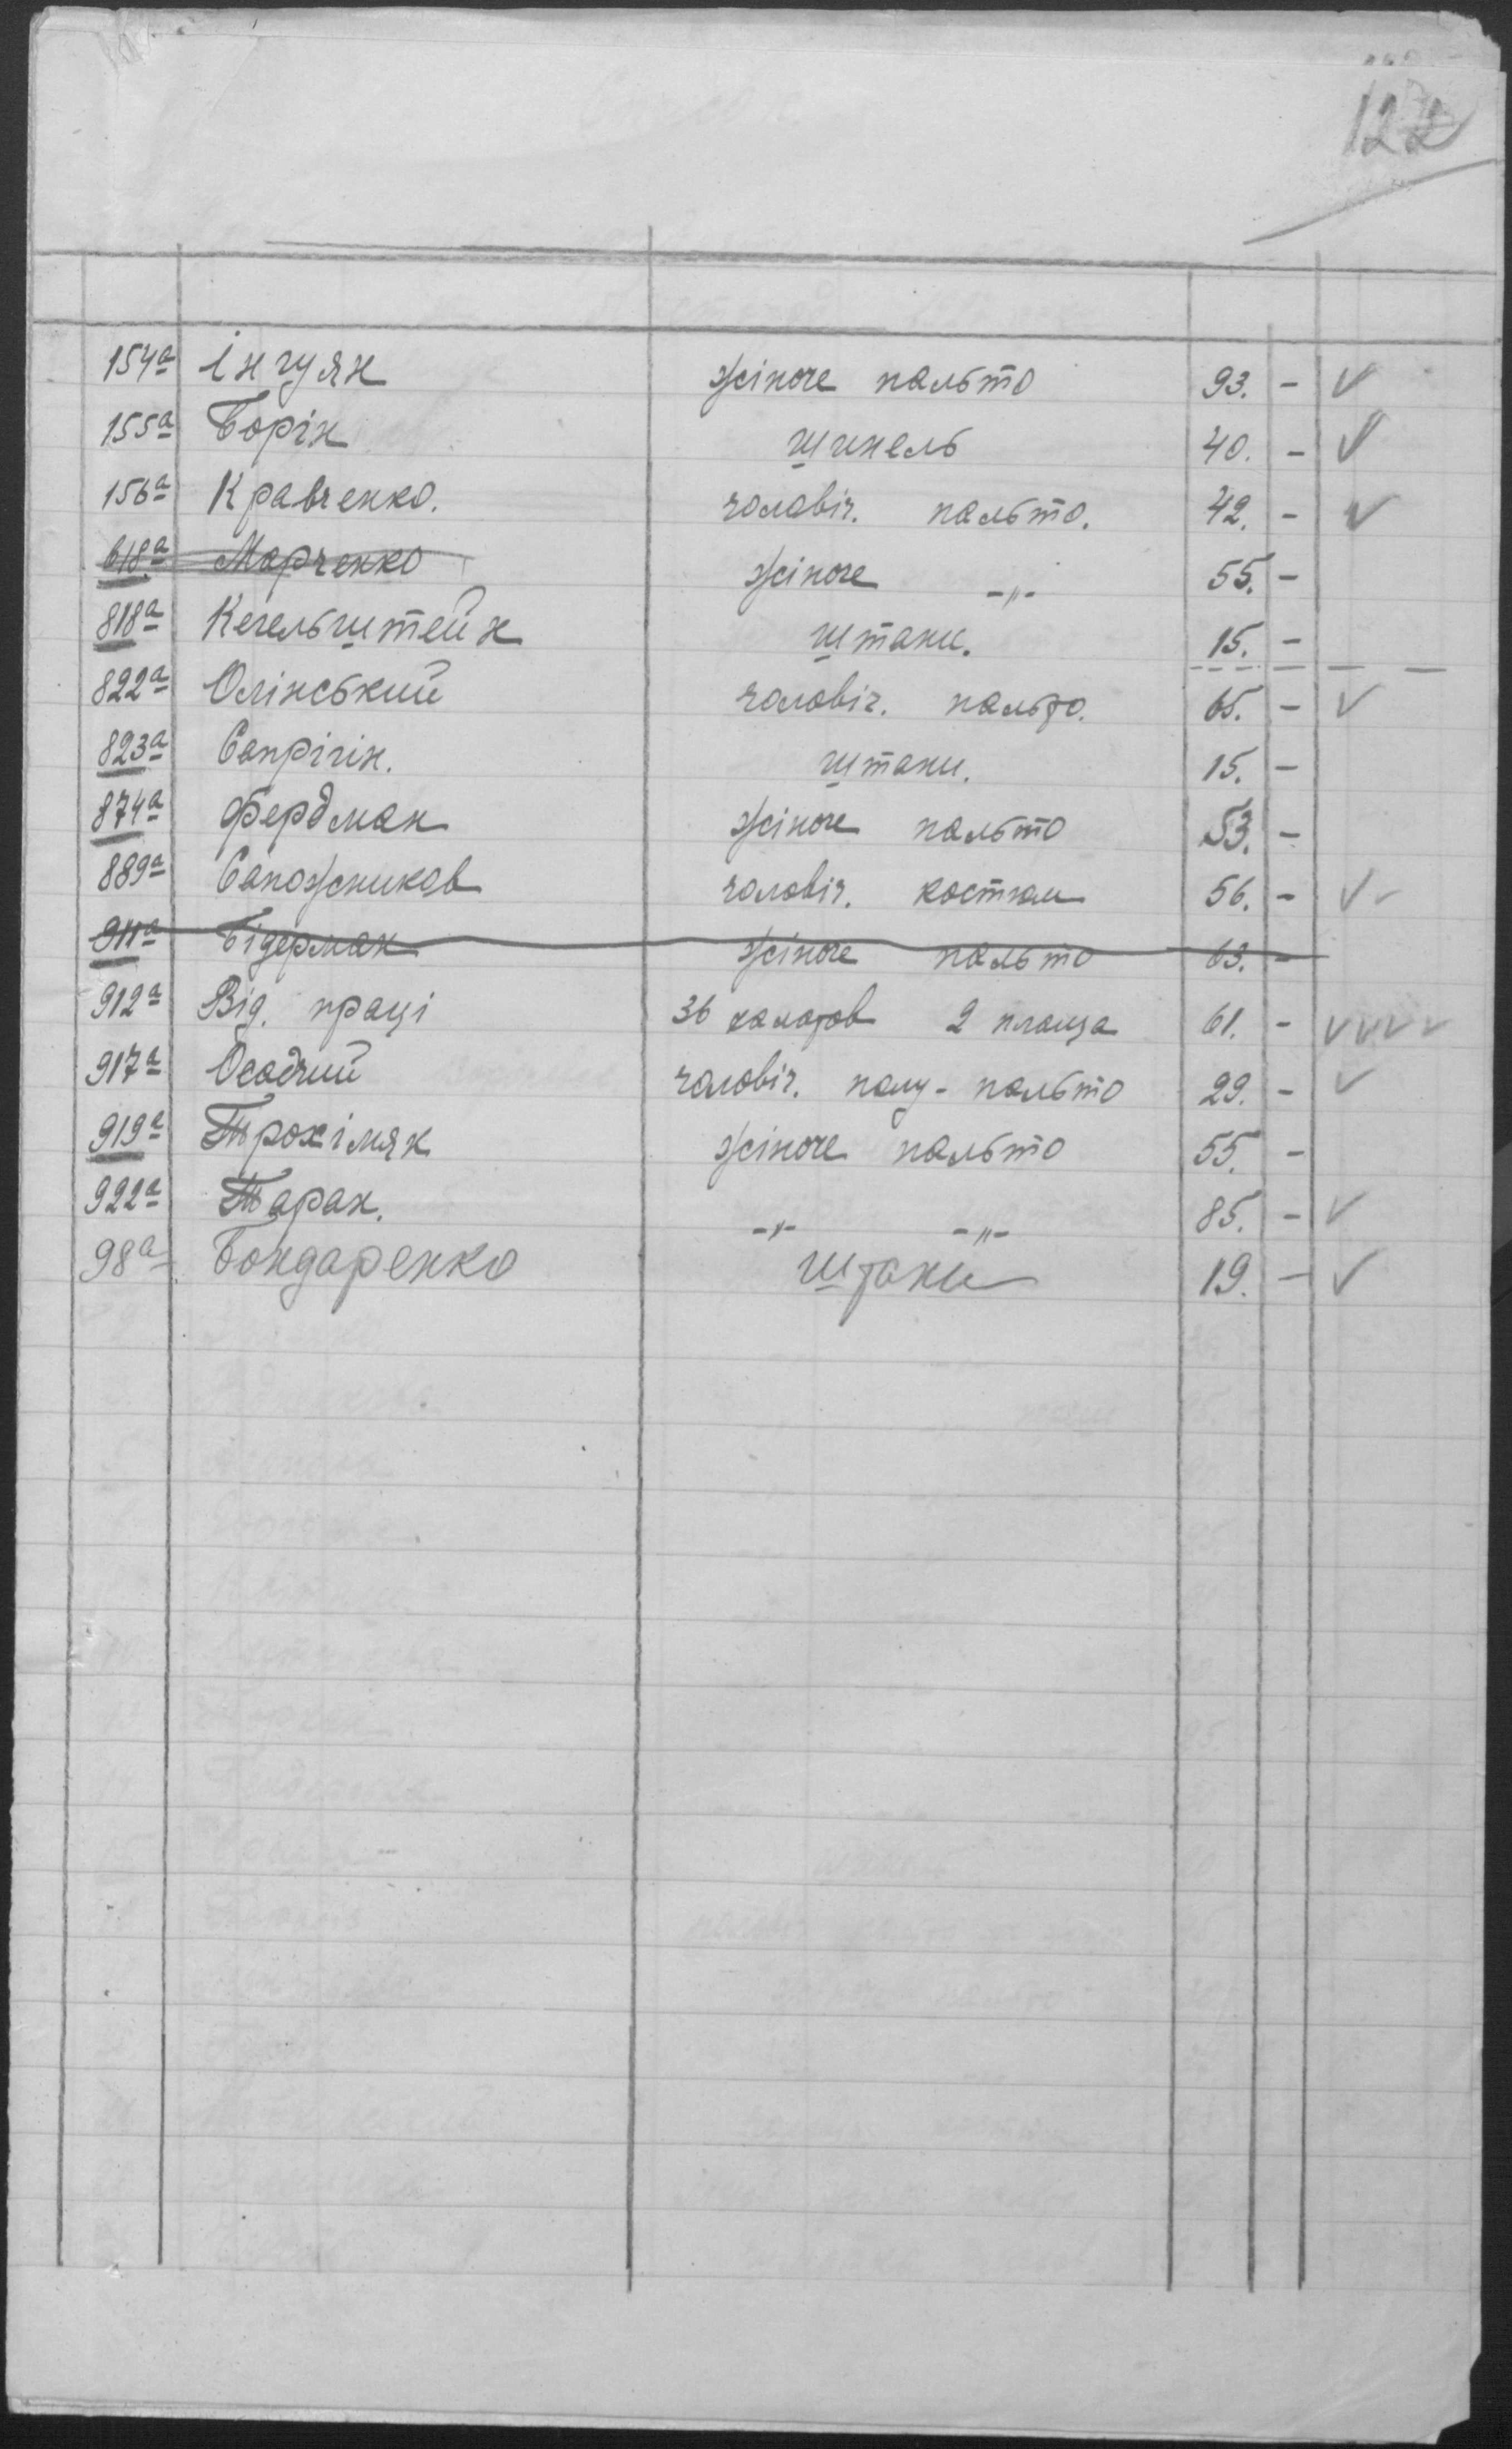 122
154а Інгуян жіноче пальто 93. - ✓
155а Борін шинель 40. - ✓
156а Кравченко. чоловіч. пальто. 42. - ✓
618а Марченко жіноче -"- 55. -
818а Кегельштейн штани. 15. -
822а Олінський чоловіч. пальто. 65. - ✓
823а Сапрігін. штани. 15. -
874а Фердман жіноче пальто 53. -
889а Сапожников чоловіч. костюм 56. - ✓✓
911а Бідерман жіноче пальто 63. -
912а Від. праці 36 халатов 2 плаща 61. - ✓✓✓✓
917а Осадчий чоловіч. полу-пальто 29. - ✓
919а Трохімяк жіноче пальто 55. -
922а Таран. -"- -"- 85. - ✓
98а Бондаренко штани 19. - ✓